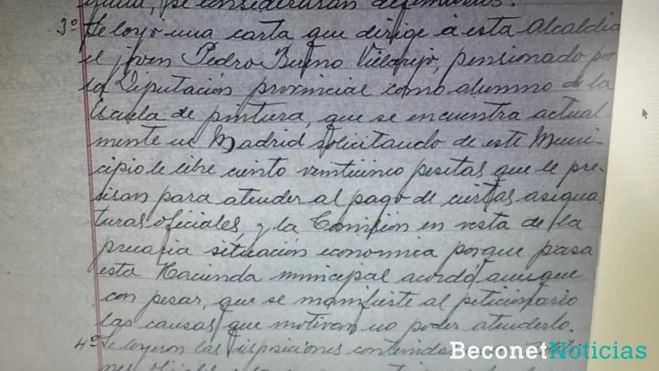 se considerarán definitivas.
3º Se leyó una carta que dirige á esta Alcaldia
el joven Pedro Bueno Villarejo, pensionado por
la Diputación provincial como alumno de la
Escuela de pintura, que se encuentra actual-
mente en Madrid solicitando de este Muni-
cipio le libre ciento veinticinco pesetas que le pre-
cisan para atender al pago de ciertas asigna-
turas oficiales, y la Comisión en vista de la
precaria situación economica porque pasa
esta Hacienda municipal acordó aunque
con pesar, que se manifieste al peticionario
las causas que motivan no poder atenderlo.
4º Se leyeron las disposiciones contenidas
BeconetNoticias